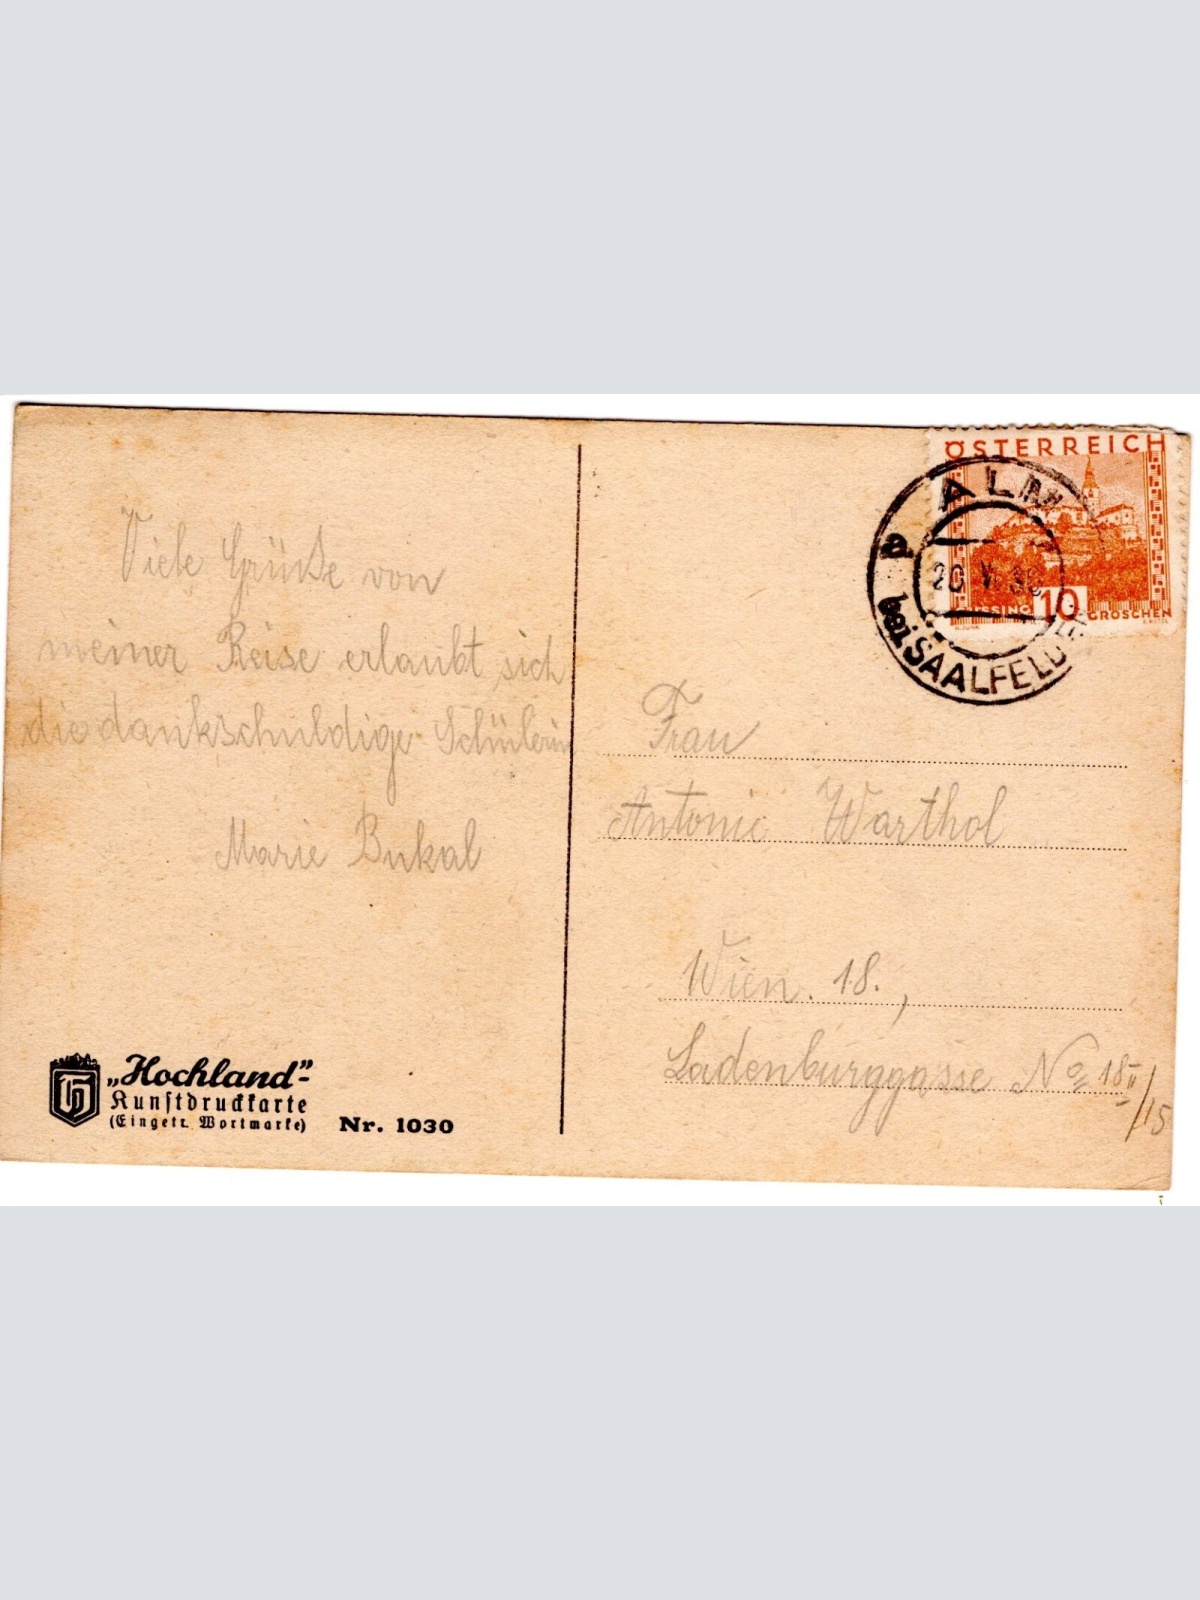 Viele Grüße von
meiner Reise erlaubt sich
die dankschuldige Schülerin
Marie Bukal
„Hochland"-
Kunstdruckkarte
(Eingetr. Wortmarke)
Nr. 1030
ÖSTERREICH
ALM
bei SAALFELDEN
20
10
GROSCHEN
Frau
Antonie Warthol
Wien. 18.,
Ladenburggasse No 18
/15